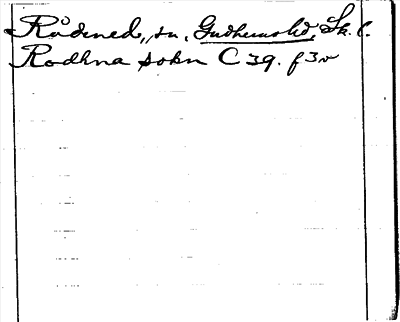 Rådened, sn, Gudhems hd, Sk. l.
Rodhna sokn C 39. f 3v